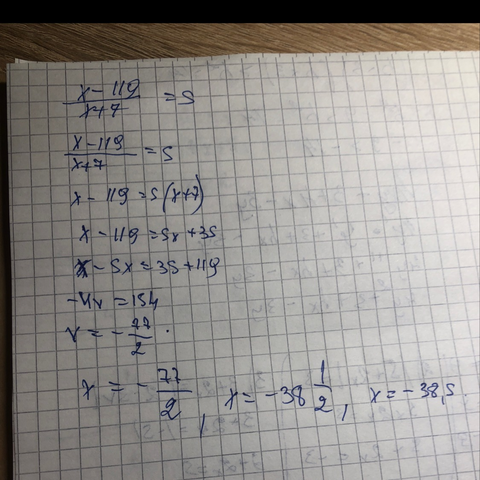 x - 119 / x+7 = 5
x - 119 / x+7 = 5
x - 119 = 5(x+7)
x - 119 = 5x + 35
x - 5x = 35 + 119
-4x = 154
x = - 77/2 .
x = - 77/2 , x = -38 1/2 , x = -38,5.